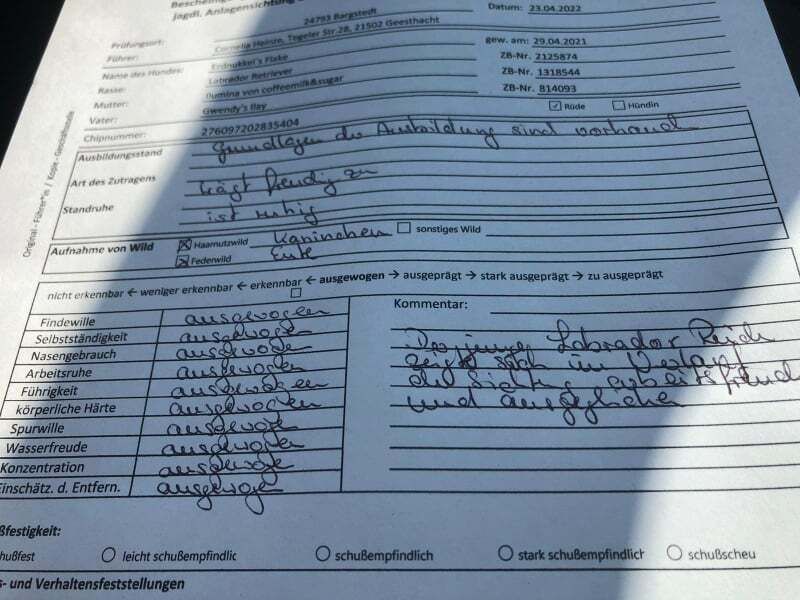 Bescheinig
jagdl. Anlagensichtung
24793 Bargstedt
Datum: 23.04.2022
Prüfungsort:
Cornelia Heinze, Tegeler Str.28, 21502 Geesthacht
Führer:
gew. am: 29.04.2021
Name des Hundes:
Erdnukkel's Fiete
ZB-Nr. 2125874
Rasse:
Labrador Retriever
ZB-Nr. 1318544
Mutter:
Ilumina von coffeemilk&sugar
ZB-Nr. 814093
Vater:
Gwendy's Ilay
Rüde Hündin
Chipnummer:
276097202835404
Original - Führer*in / Kopie - Geschäftsstelle
Ausbildungsstand
Grundlagen der Ausbildung sind vorhand
Art des Zutragens
trägt freudig zu
Standruhe
ist ruhig
Aufnahme von Wild Haarnutzwild Kaninchen sonstiges Wild
Federwild Ente
nicht erkennbar ← weniger erkennbar ← erkennbar ← ausgewogen → ausgeprägt → stark ausgeprägt → zu ausgeprägt
Kommentar:
Findewille ausgewogen
Selbstständigkeit ausgewogen
Nasengebrauch ausgewogen
Arbeitsruhe ausgewogen
Führigkeit ausgewogen
körperliche Härte ausgewogen
Spurwille ausgewogen
Wasserfreude ausgewogen
Konzentration ausgewogen
Einschätz. d. Entfern. ausgewogen
Der junge Labrador Rüde
zeigt sich im Verlauf
der Sichtung arbeitsfreud
und ausgeglichen
ßfestigkeit:
hußfest leicht schußempfindlic schußempfindlich stark schußempfindlich schußscheu
s- und Verhaltensfeststellungen